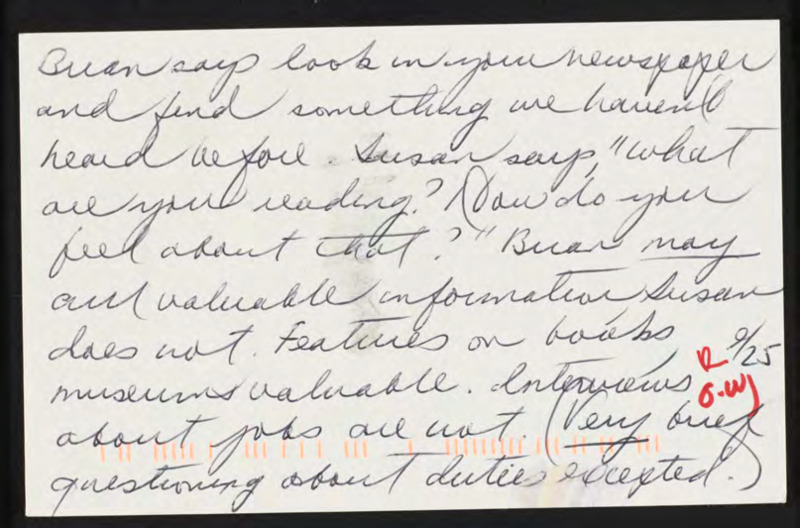 Brian says look in your newspaper
and find something we haven't
heard before. Susan says, "what
are you reading? How do you
feel about that?" Brian may
cull valuable information Susan
does not. Features on books
museums valuable. Interviews
R 9/25
O.W)
about jobs are not. (Very brief
questioning about duties excepted.)